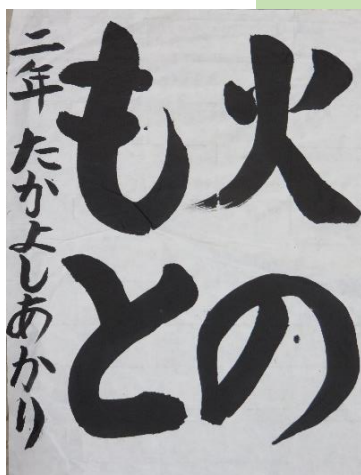 火の
もと
二年 たかよしあかり